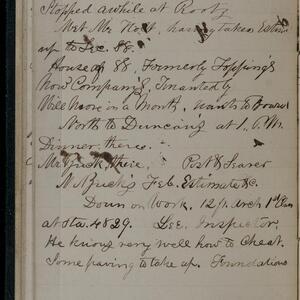 Stopped awhile at Rootz
Met Mr. Holt, having taken Estim
up to Sec. 88.
House of 88, Formerly Topping's
Now Company's, Tenanted by
Will move in a month, wants to
North to Duncan's at 1. P. M.
Dinner there.
Mr. Buck there, Post & Searer
N. Buck's Feb. Estimate &c.
Down on Work. 12 ft. Arch 1st
at Sta. 4829. Lee. Inspector,
He knows very well how to Cheat.
Some paving to take up. Foundations